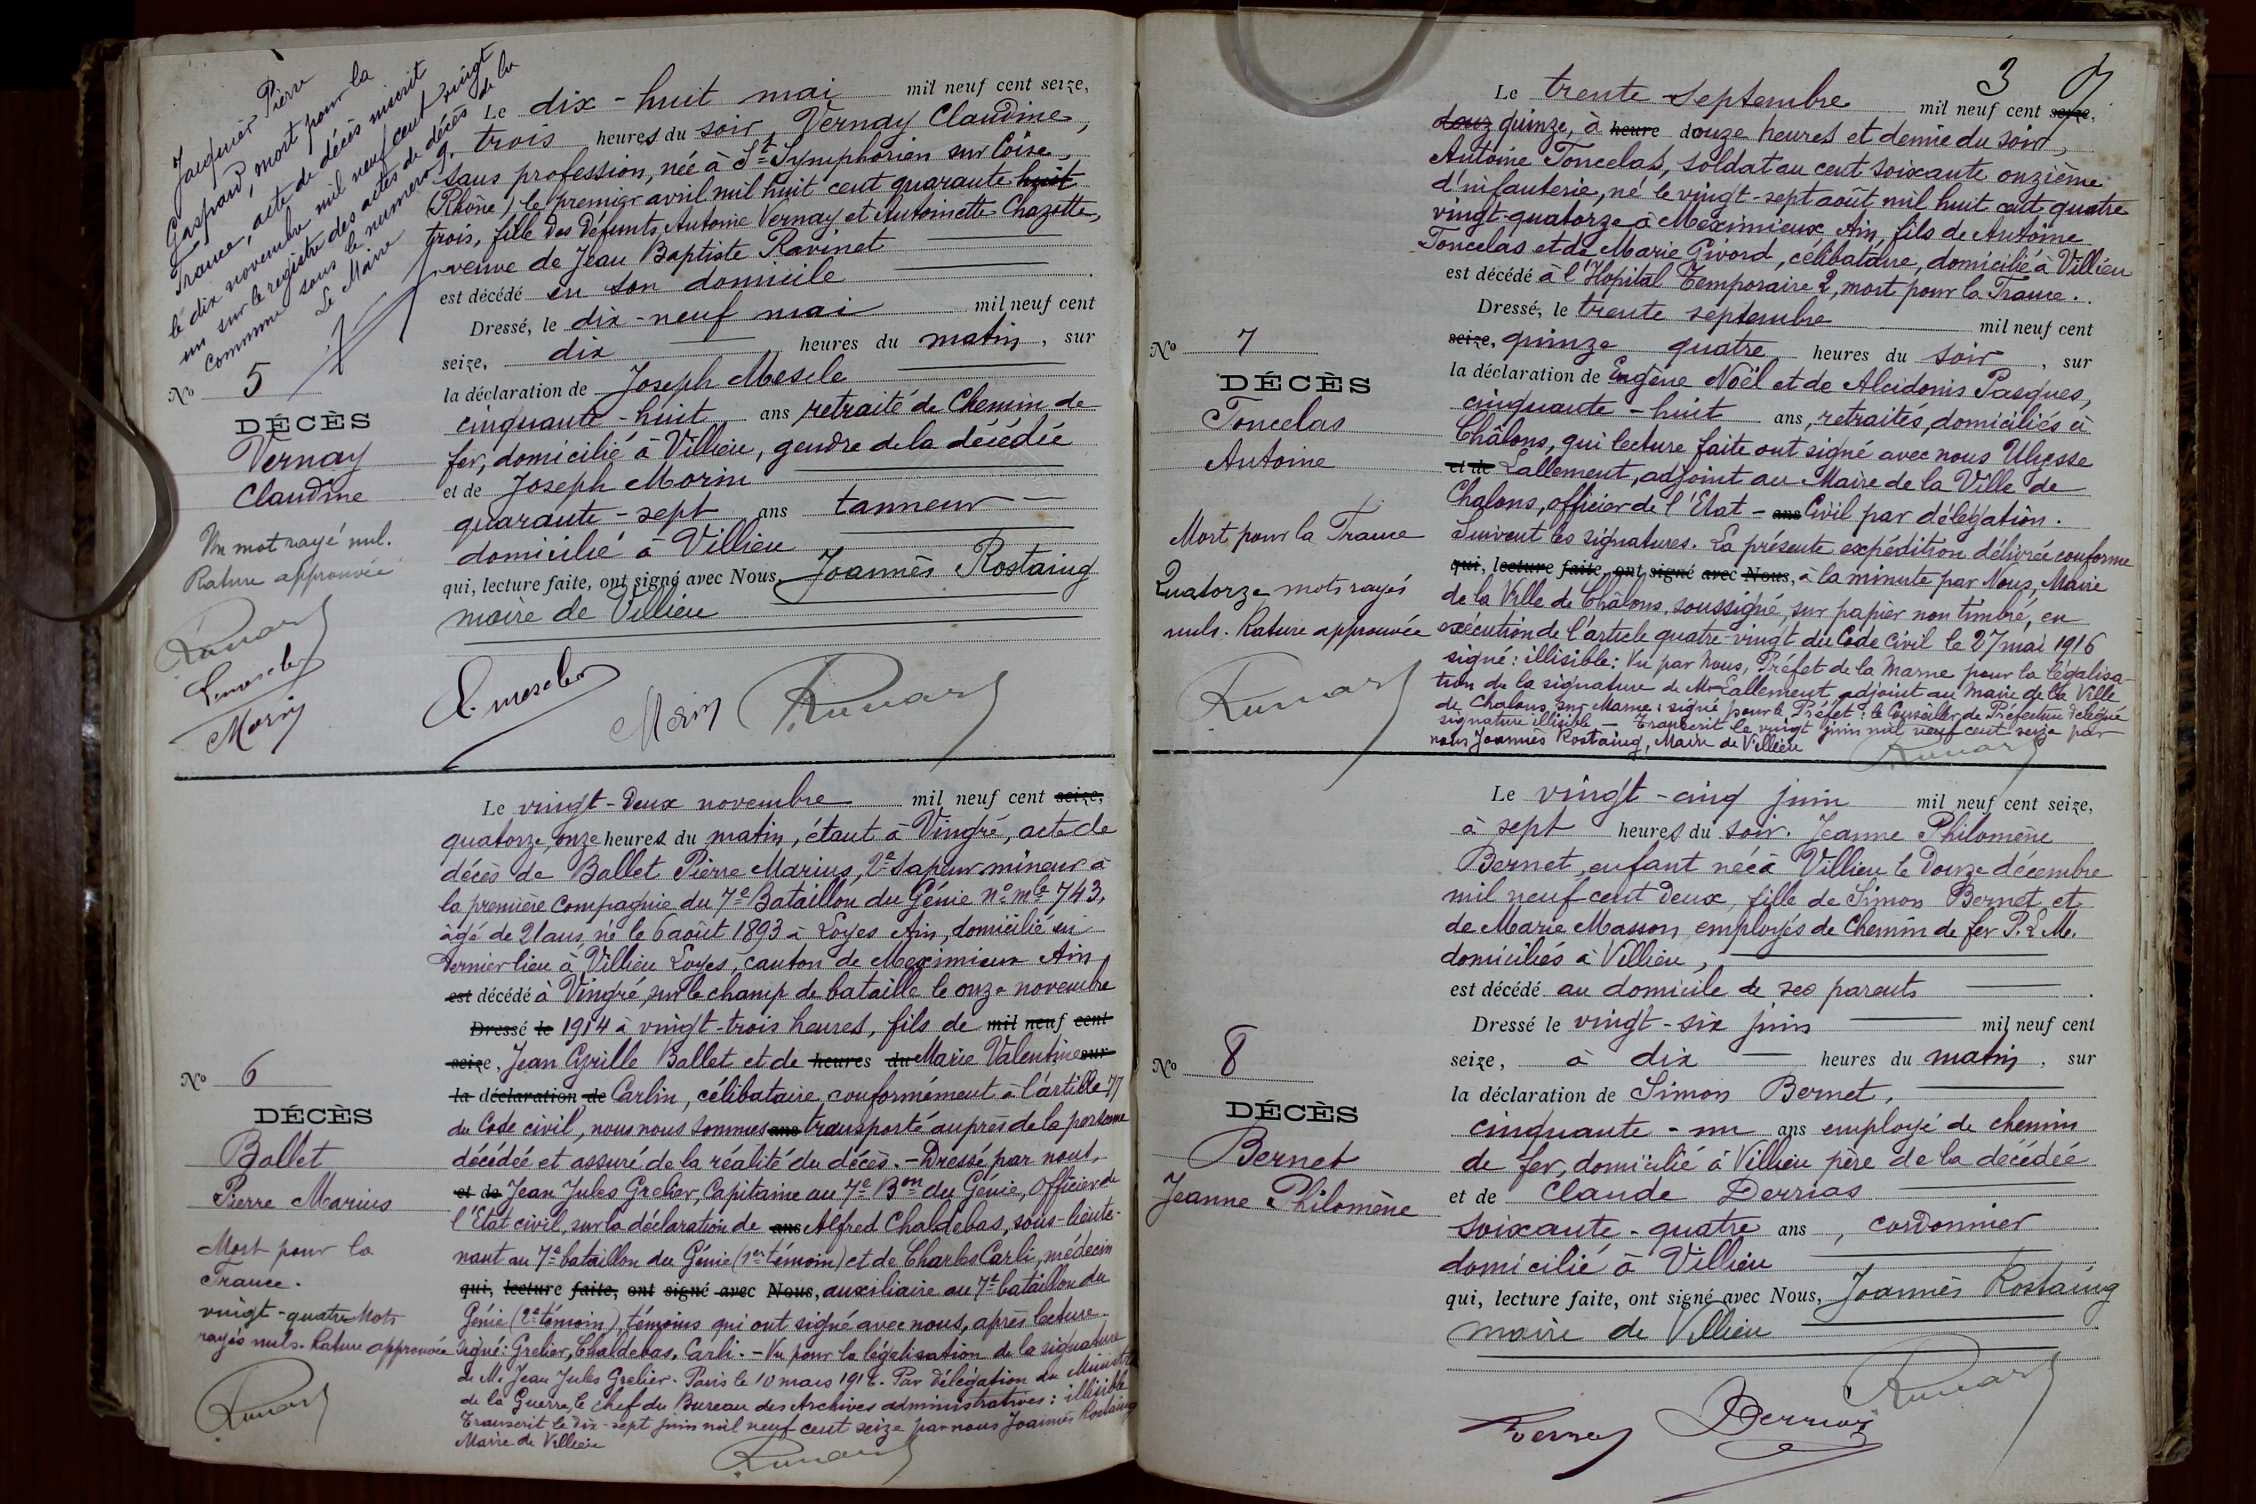 Jacquier Pierre
Gaspard, mort pour la
France, acte de décès inscrit
le dix novembre mil neuf cent vingt
un sur le registre des actes de décès de la
commune sous le numero 9.
Le Maire
Le dix-huit mai mil neuf cent seize,
trois heures du soir, Vernay Claudine,
sans profession, née à St Symphorien sur Coise
(Rhône), le premier avril mil huit cent quarante huit
trois, fille des défunts Antoine Vernay et Antoinette Chazotte,
veuve de Jean Baptiste Ravinet
est décédé en son domicile
Dressé, le dix-neuf mai mil neuf cent
seize, dix heures du matin, sur
la déclaration de Joseph Mescle
cinquante-huit ans retraité de Chemin de
fer, domicilié à Villieu, gendre de la décédée
et de Joseph Morin
quarante-sept ans tanneur
domicilié à Villieu
qui, lecture faite, ont signé avec Nous, Joannès Rostaing
maire de Villieu
No 5
DÉCÈS
Vernay
Claudine
Un mot rayé nul.
Rature approuvée
Morin
Morin
Le vingt-deux novembre mil neuf cent seize,
quatorze, onze heures du matin, étant à Vingré, acte de
décès de Ballet Pierre Marius, 2e Sapeur mineur à
la première compagnie du 7e Bataillon du Génie No mle 743,
âgé de 21 ans, né le 6 août 1893 à Loyes Ain, domicilié en
dernier lieu à Villieu Loyes, canton de Meximieux Ain
est décédé à Vingré, sur le champ de bataille le onze novembre
Dressé le 1914 à vingt-trois heures, fils de mil neuf cent
seize, Jean Cyrille Ballet et de heures du Marie Valentine sur
la déclaration de Carlin, célibataire, conformément à l'article 77
du Code civil, nous nous sommes ans transporté auprès de la personne
décédée et assuré de la réalité du décès. - Dressé par nous,
et de Jean Jules Grelier, Capitaine au 7e Bon du Génie, Officier de
l'Etat civil, sur la déclaration de ans Alfred Chaldebas, sous-lieute-
nant au 7e bataillon du Génie (1er témoin) et de Charles Carli, médecin
qui, lecture faite, ont signé avec Nous, auxiliaire au 7e bataillon du
Génie (2e témoin), témoins qui ont signé avec nous, après lecture.
Signé: Grelier, Chaldebas, Carli. - Vu pour la légalisation de la signature
de M. Jean Jules Grelier. Paris le 10 mars 1916. Par délégation du Ministre
de la Guerre, le chef du Bureau des Archives administratives: illisible
Transcrit le dix-sept juin mil neuf cent seize par nous Joannès Rostaing
Maire de Villieu
No 6
DÉCÈS
Ballet
Pierre Marius
Mort pour la
France.
vingt-quatre Mots
rayés nuls. Rature approuvée
3
Le trente septembre mil neuf cent seize,
douz quinze, à heure douze heures et demie du soir,
Antoine Toncelas, soldat au cent soixante onzième
d'infanterie, né le vingt-sept août mil huit cent quatre
vingt-quatorze à Meximieux Ain, fils de Antoine
Toncelas et de Marie Givord, célibataire, domicilié à Villieu
est décédé à l'Hopital Temporaire 2, mort pour la France.
Dressé, le trente septembre mil neuf cent
seize, quinze quatre heures du soir, sur
la déclaration de Eugène Noël et de Alcidonis Pasques,
cinquante-huit ans, retraités, domiciliés à
Châlons, qui lecture faite ont signé avec nous Ulysse
et de Lallement, adjoint au Maire de la Ville de
Chalons, officier de l'Etat - ans Civil par délégation.
Suivent les signatures. La présente expédition délivrée conforme
qui, lecture faite, ont signé avec Nous, à la minute par Nous, Maire
de la Ville de Châlons, soussigné, sur papier non timbré, en
exécution de l'article quatre-vingt du Code Civil le 27 mai 1916
signé: illisible: Vu par nous, Préfet de la Marne pour la légalisa-
tion de la signature de Mr Lallement, adjoint au Maire de la Ville
de Chalons sur Marne: signé pour le Préfet: le Conseiller de Préfecture délégué
signature illisible - Transcrit le vingt juin mil neuf cent seize par
nous Joannès Rostaing, Maire de Villieu
No 7
DÉCÈS
Toncelas
Antoine
Mort pour la France
Quatorze mots rayés
nuls. Rature approuvée
Le vingt-cinq juin mil neuf cent seize,
à sept heures du soir. Jeanne Philomène
Bernet, enfant née à Villieu le douze décembre
mil neuf cent deux, fille de Simon Bernet et
de Marie Masson, employés de Chemin de fer P.L.M.
domiciliés à Villieu,
est décédé au domicile de ses parents
Dressé le vingt-six juin mil neuf cent
seize, à dix heures du matin, sur
la déclaration de Simon Bernet,
cinquante-un ans employé de chemin
de fer, domicilié à Villieu père de la décédée
et de Claude Derrias
soixante-quatre ans, cordonnier
domicilié à Villieu
qui, lecture faite, ont signé avec Nous, Joannès Rostaing
maire de Villieu
No 8
DÉCÈS
Bernet
Jeanne Philomène